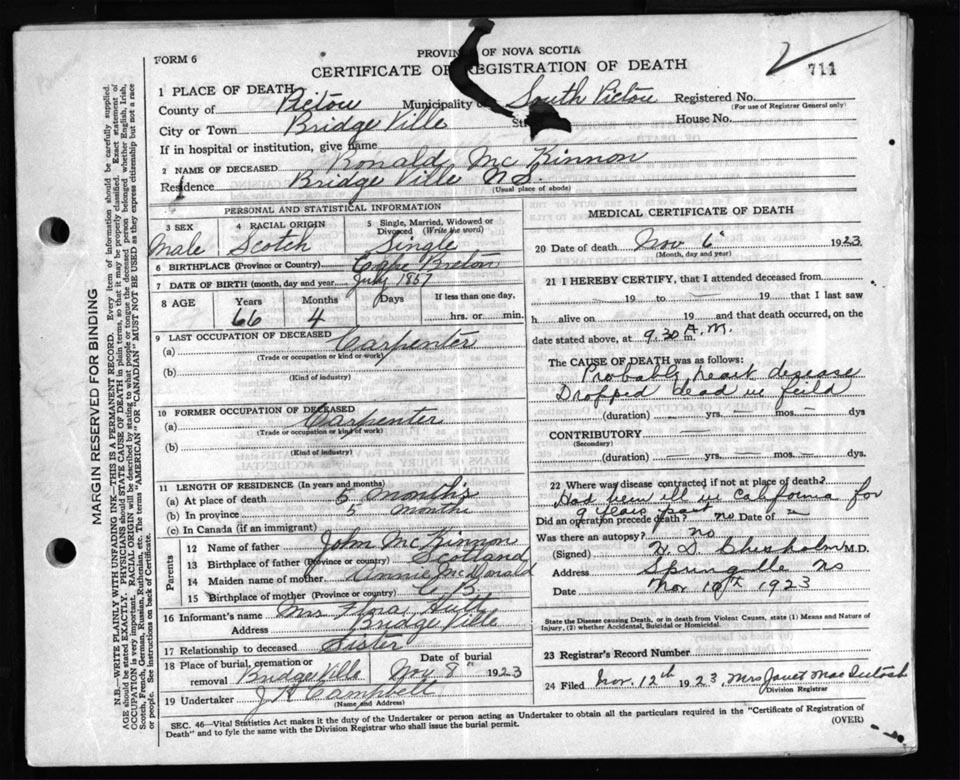 FORM 6
PROVINCE OF NOVA SCOTIA
CERTIFICATE OF REGISTRATION OF DEATH
711
1 PLACE OF DEATH
County of Pictou Municipality of South Pictou Registered No.
(For use of Registrar General only)
City or Town Bridge Ville St. House No.
If in hospital or institution, give name
2 NAME OF DECEASED Ronald McKinnon
Residence Bridge Ville N.S.
(Usual place of abode)
PERSONAL AND STATISTICAL INFORMATION
3 SEX Male
4 RACIAL ORIGIN Scotch
5 Single, Married, Widowed or Divorced (Write the word) Single
6 BIRTHPLACE (Province or Country) Cape Breton
7 DATE OF BIRTH (month, day and year) July 1857
8 AGE Years 66 Months 4 Days If less than one day, hrs. or min.
9 LAST OCCUPATION OF DECEASED
(a) Carpenter
(Trade or occupation or kind or work)
(b)
(Kind of industry)
10 FORMER OCCUPATION OF DECEASED
(a) Carpenter
(Trade or occupation or kind of work)
(b)
(Kind of industry)
11 LENGTH OF RESIDENCE (In years and months)
(a) At place of death 5 months
(b) In province 5 months
(c) In Canada (if an immigrant)
Parents
12 Name of father John McKinnon
13 Birthplace of father (Province or country) Scotland
14 Maiden name of mother Annie McDonald
15 Birthplace of mother (Province or country) C B.
16 Informant's name Mrs Flora
Address Bridge Ville
17 Relationship to deceased Sister
18 Place of burial, cremation or removal Bridge Ville Date of burial Nov 8 1923
19 Undertaker J H Campbell
(Name and Address)
MEDICAL CERTIFICATE OF DEATH
20 Date of death Nov 6 1923
(Month, day and year)
21 I HEREBY CERTIFY, that I attended deceased from
19 to 19 that I last saw
h alive on 19 and that death occurred, on
date stated above, at 9.30 A.M. m.
The CAUSE OF DEATH was as follows:
Probably heart disease
Dropped dead in feild
(duration) yrs. mos. dys
CONTRIBUTORY
(Secondary)
(duration) yrs. mos. dys.
22 Where was disease contracted if not at place of death?
Had been ill in California for
9 years past
Did an operation precede death? no Date of
Was there an autopsy? no
(Signed) Chisholm M.D.
Address Springville NS
Date Nov 10th 1923
State the Disease causing Death, or in death from Violent Causes, state (1) Means and Nature of Injury, (2) whether Accidental, Suicidal or Homicidal.
23 Registrar's Record Number
24 Filed Nov. 12th 1923, Mrs Janet MacIntosh
Division Registrar
SEC. 46—Vital Statistics Act makes it the duty of the Undertaker or person acting as Undertaker to obtain all the particulars required in the "Certificate of Registration of
Death" and to fyle the same with the Division Registrar who shall issue the burial permit.
(OVER)
MARGIN RESERVED FOR BINDING
N.B.—WRITE PLAINLY WITH UNFADING INK—THIS IS A PERMANENT RECORD. Every item of information should be carefully supplied.
AGE should be stated EXACTLY. PHYSICIANS should STATE CAUSE OF DEATH in plain terms, so that it may be properly classified. Exact statement of
OCCUPATION is very important. RACIAL ORIGIN will be described by stating to what people or tongue the deceased person belonged whether English, Irish,
Scotch, French, German, Russian, Ruthenian, etc. The terms "AMERICAN" OR "CANADIAN" MUST NOT BE USED as they express citizenship but not a race
or people. See instructions on back of Certificate.